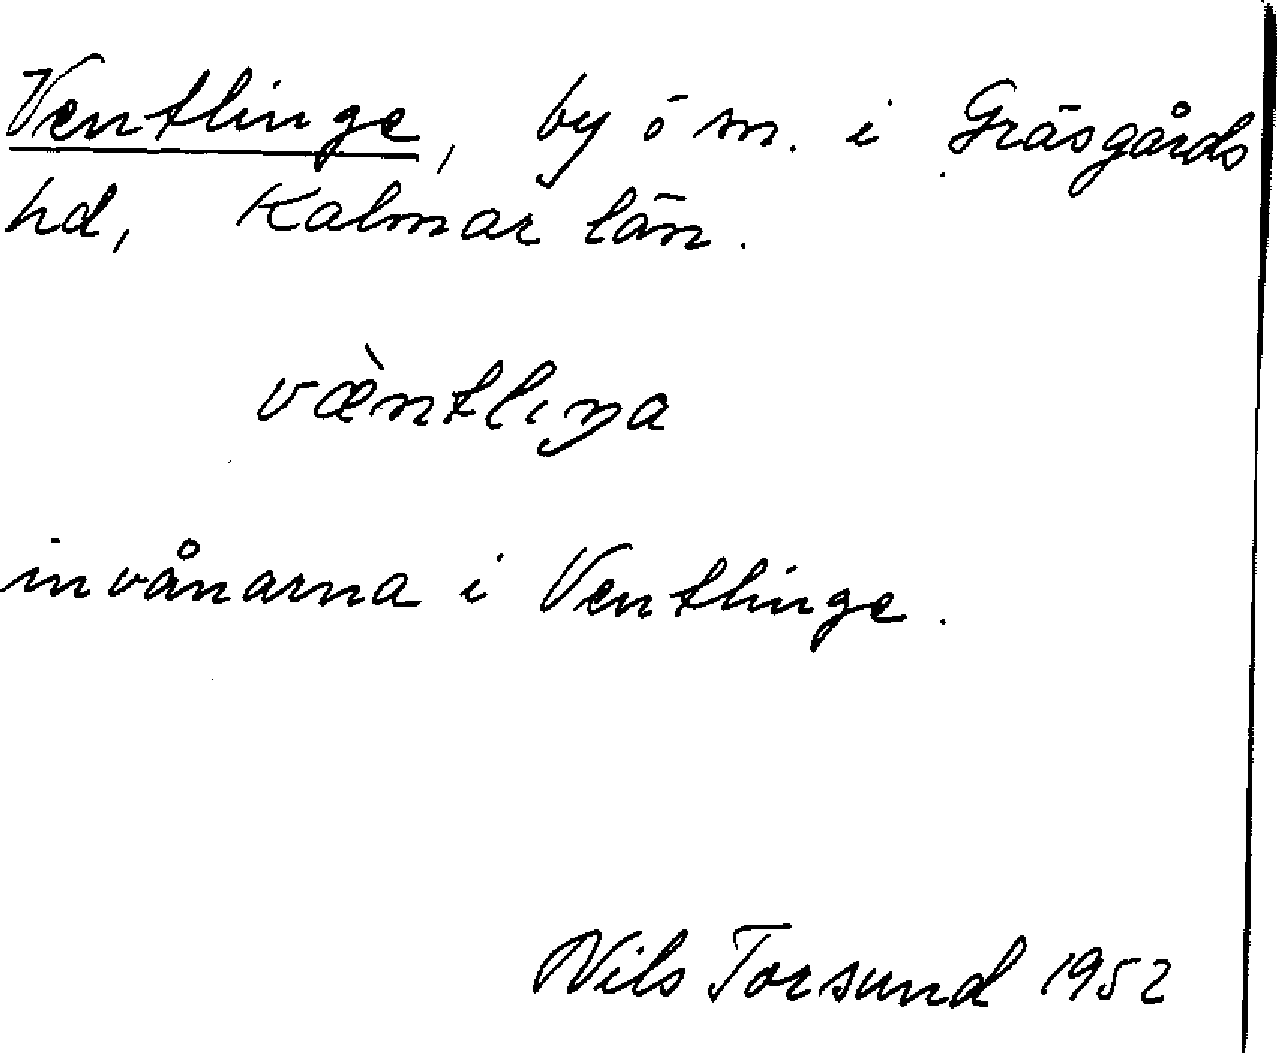 Ventlinge, by ö sn. i Gräsgårds
hd, Kalmar län.
væ̀ntlıŋa
invånarna i Ventlinge.
Nils Torsund 1952